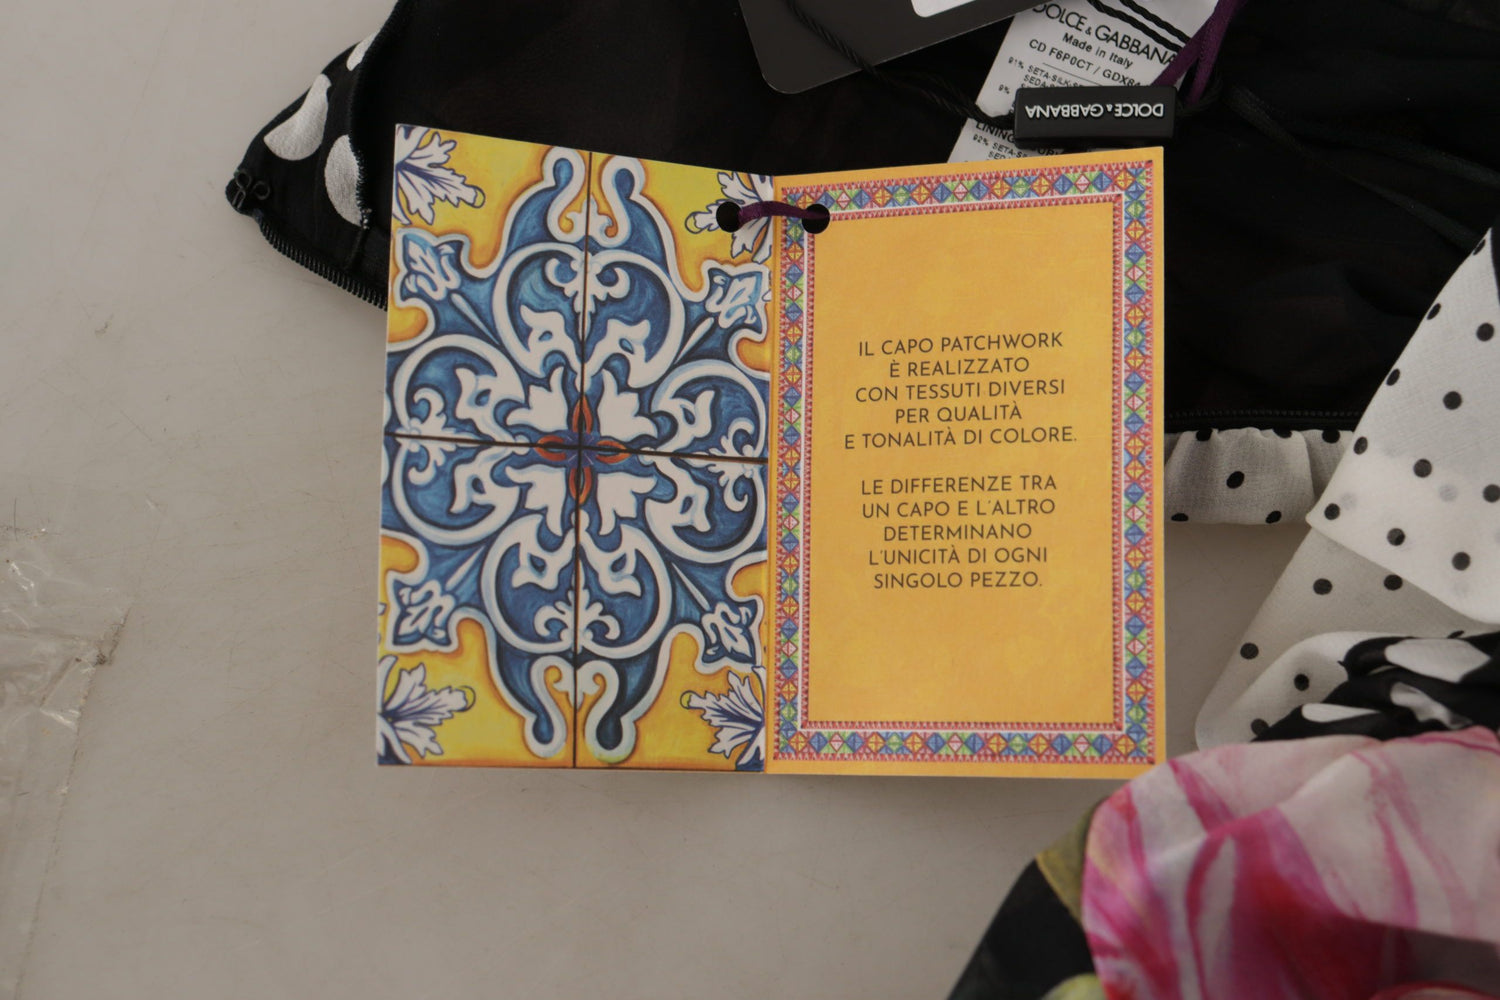 DOLCE & GABBANA
Made in Italy
CD F6P0CT / GDX8
91% SETA-SILK-
9%
LINING
92% SETA-S
DOLCE & GABBANA
IL CAPO PATCHWORK
È REALIZZATO
CON TESSUTI DIVERSI
PER QUALITÀ
E TONALITÀ DI COLORE.
LE DIFFERENZE TRA
UN CAPO E L'ALTRO
DETERMINANO
L'UNICITÀ DI OGNI
SINGOLO PEZZO.